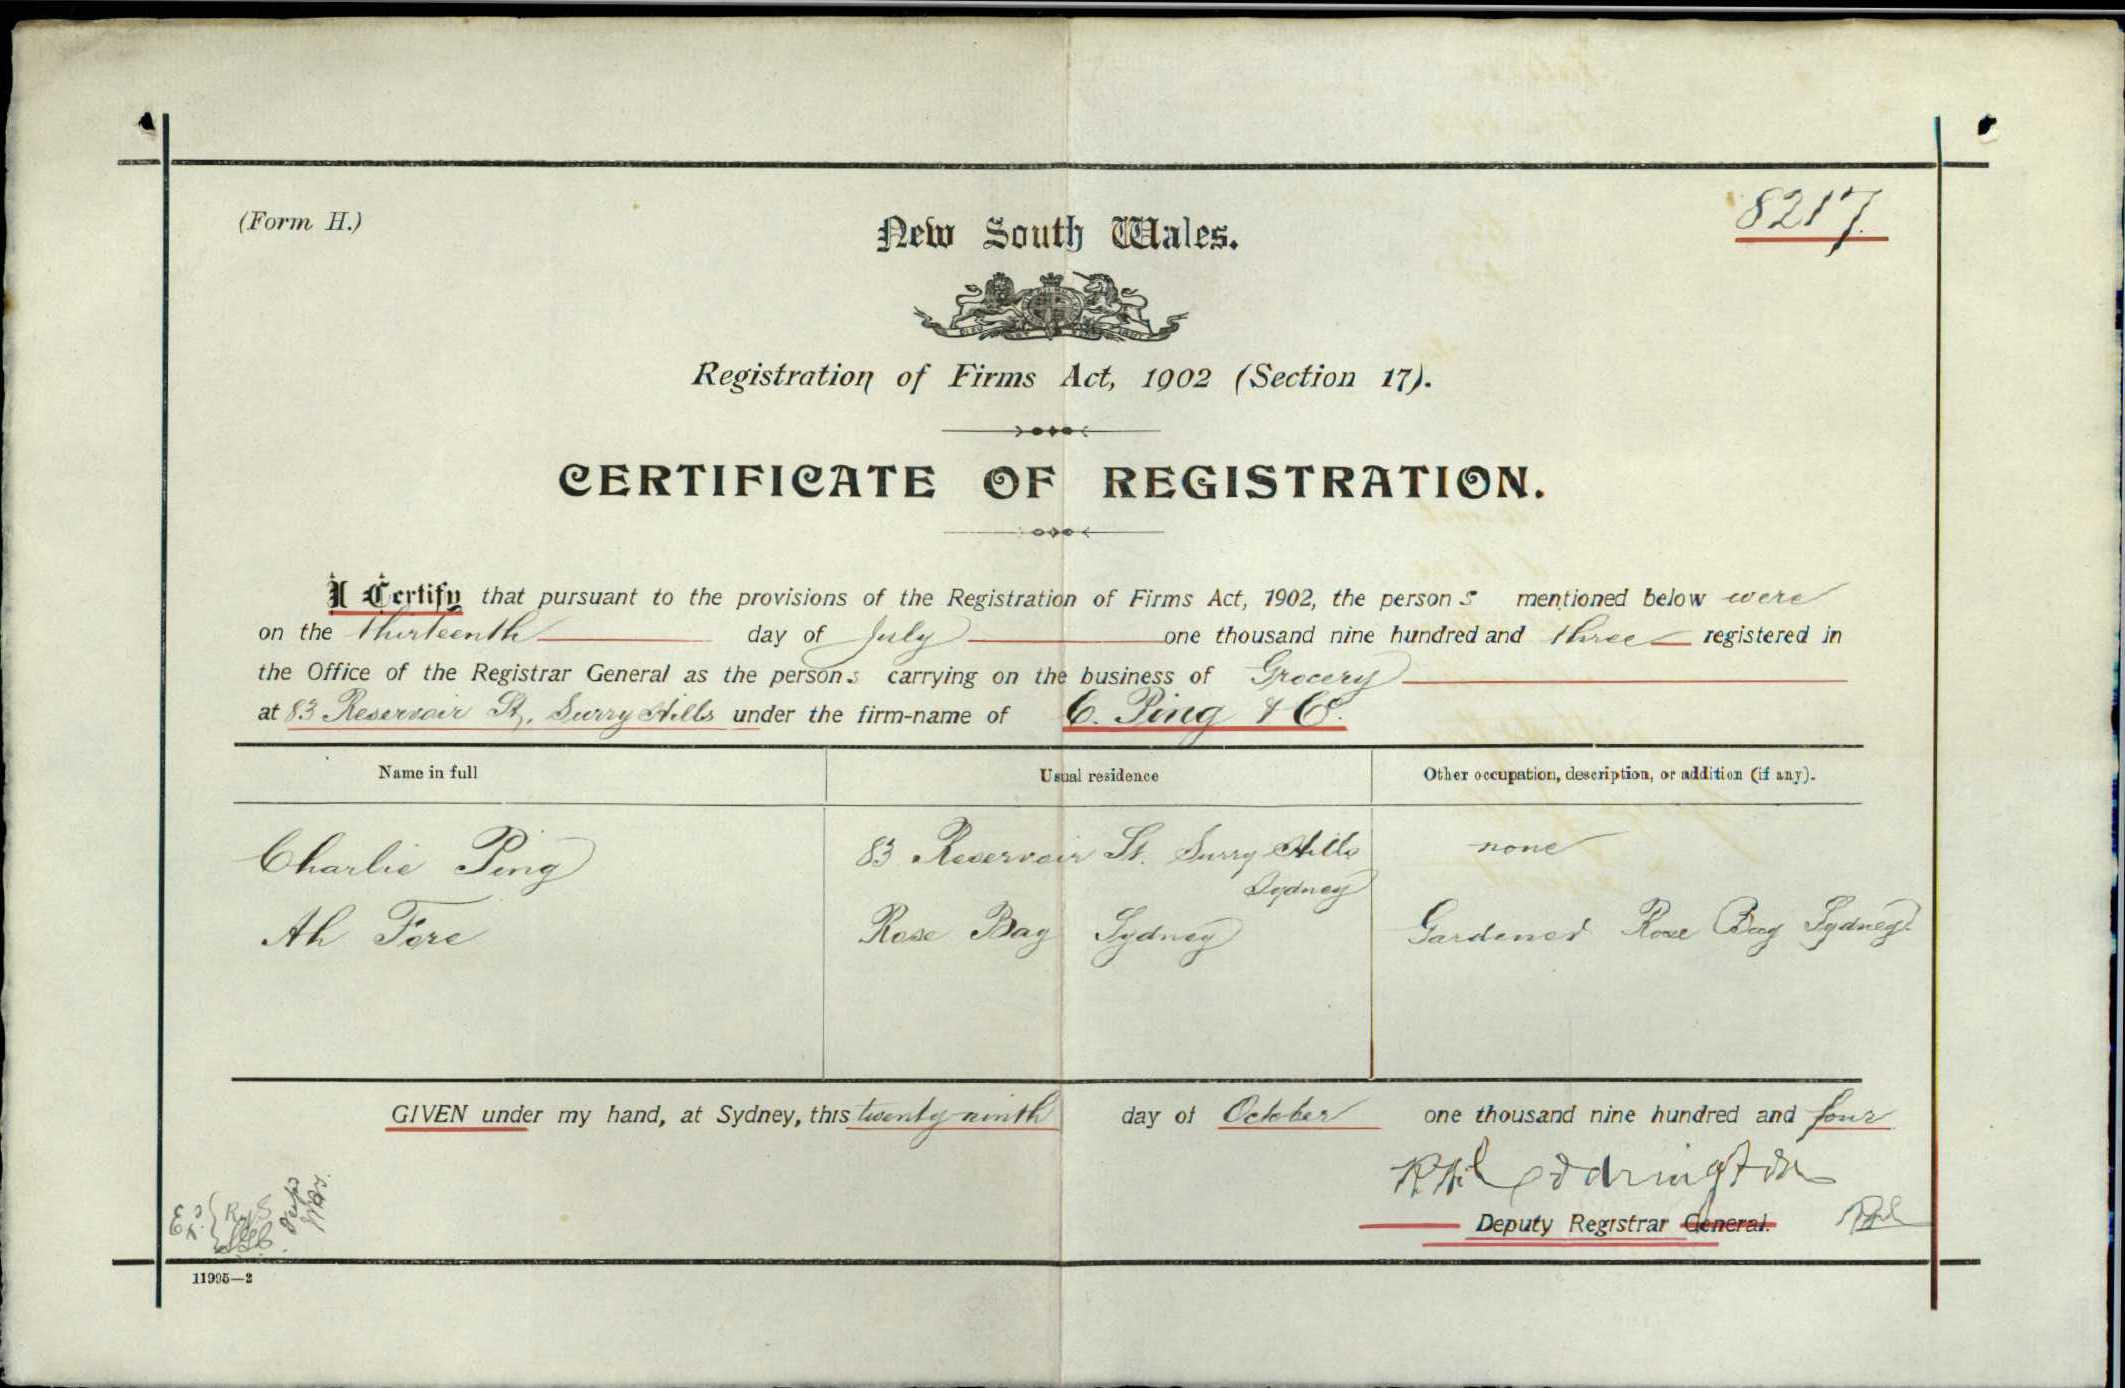 (Form H.)
8217.
New South Wales.
Registration of Firms Act, 1902 (Section 17).
CERTIFICATE OF REGISTRATION.
I Certify that pursuant to the provisions of the Registration of Firms Act, 1902, the persons mentioned below were
on the thirteenth day of July one thousand nine hundred and three registered in
the Office of the Registrar General as the persons carrying on the business of Grocery
at 83 Reservoir St, Surry Hills under the firm-name of C. Ping & Co.
Name in full Usual residence Other occupation, description, or addition (if any).
Charlie Ping 83 Reservoir St. Surry Hills none
Sydney
Ah Fore Rose Bay Sydney Gardener Rose Bay Sydney.
GIVEN under my hand, at Sydney, this twenty ninth day of October one thousand nine hundred and four
Deputy Registrar General.
11995—2